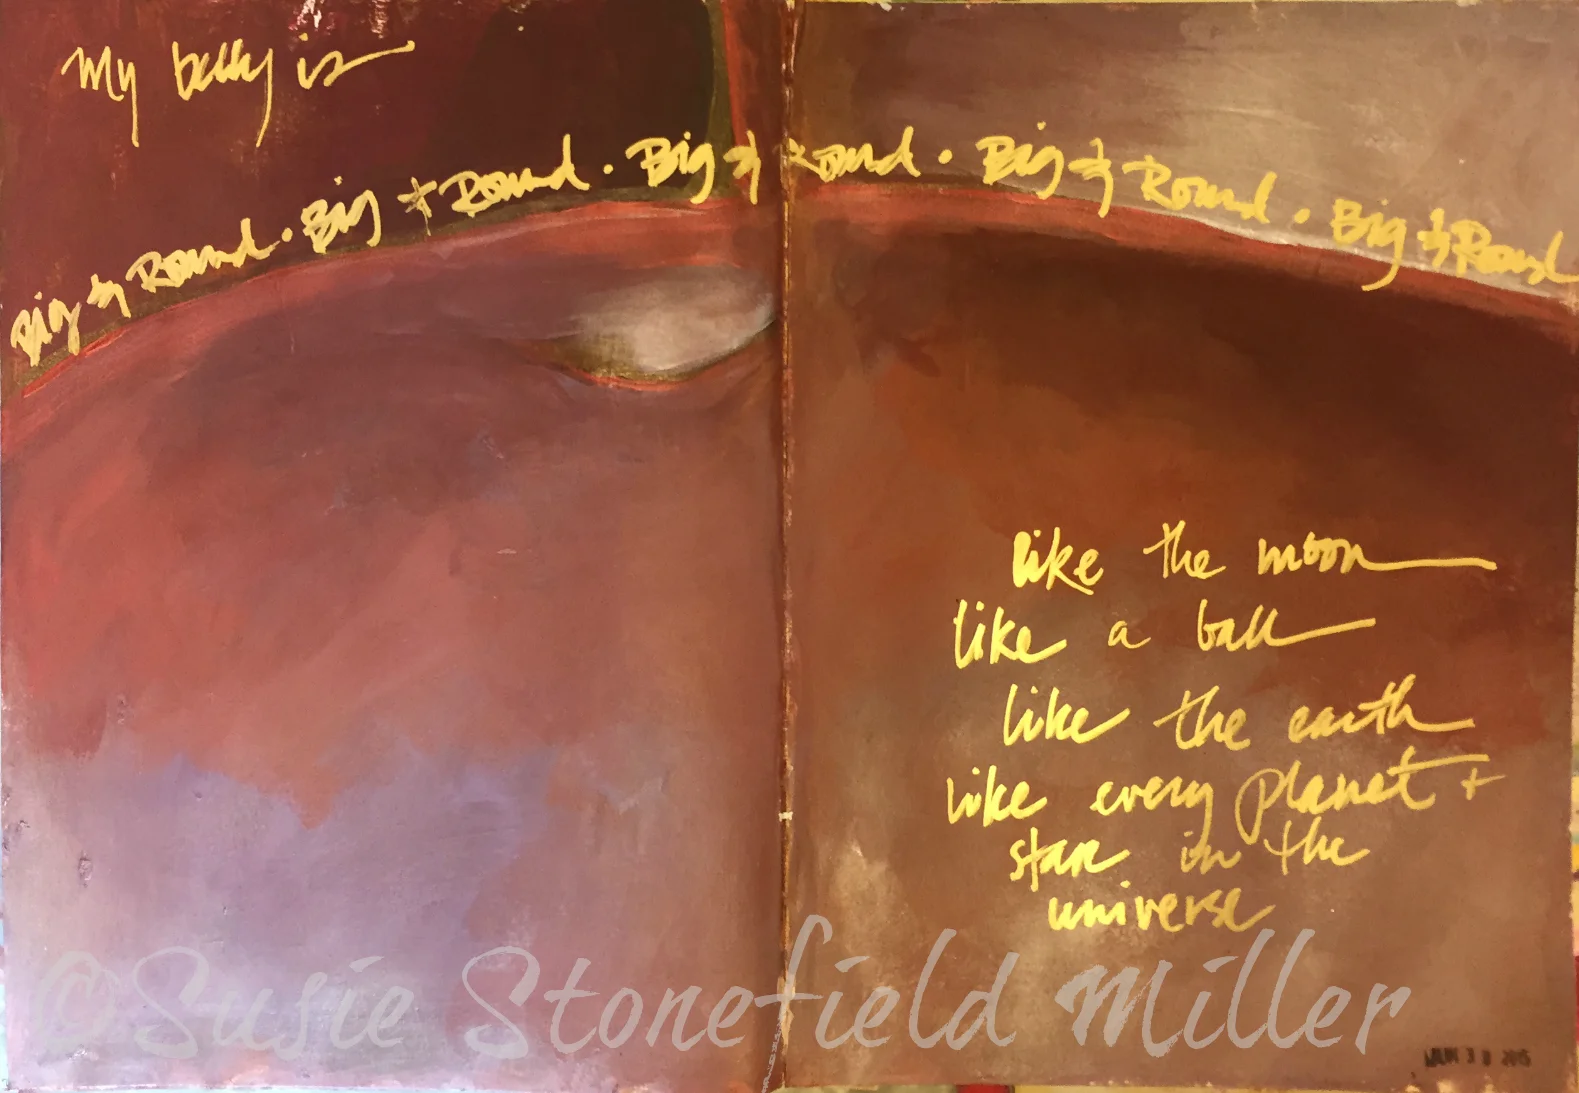 My belly is
Big & Round · Big & Round · Big & Round · Big & Round · Big & Round
like the moon
like a ball
like the earth
like every planet +
star in the
universe
©Susie Stonefield Miller
JUN 30 2015